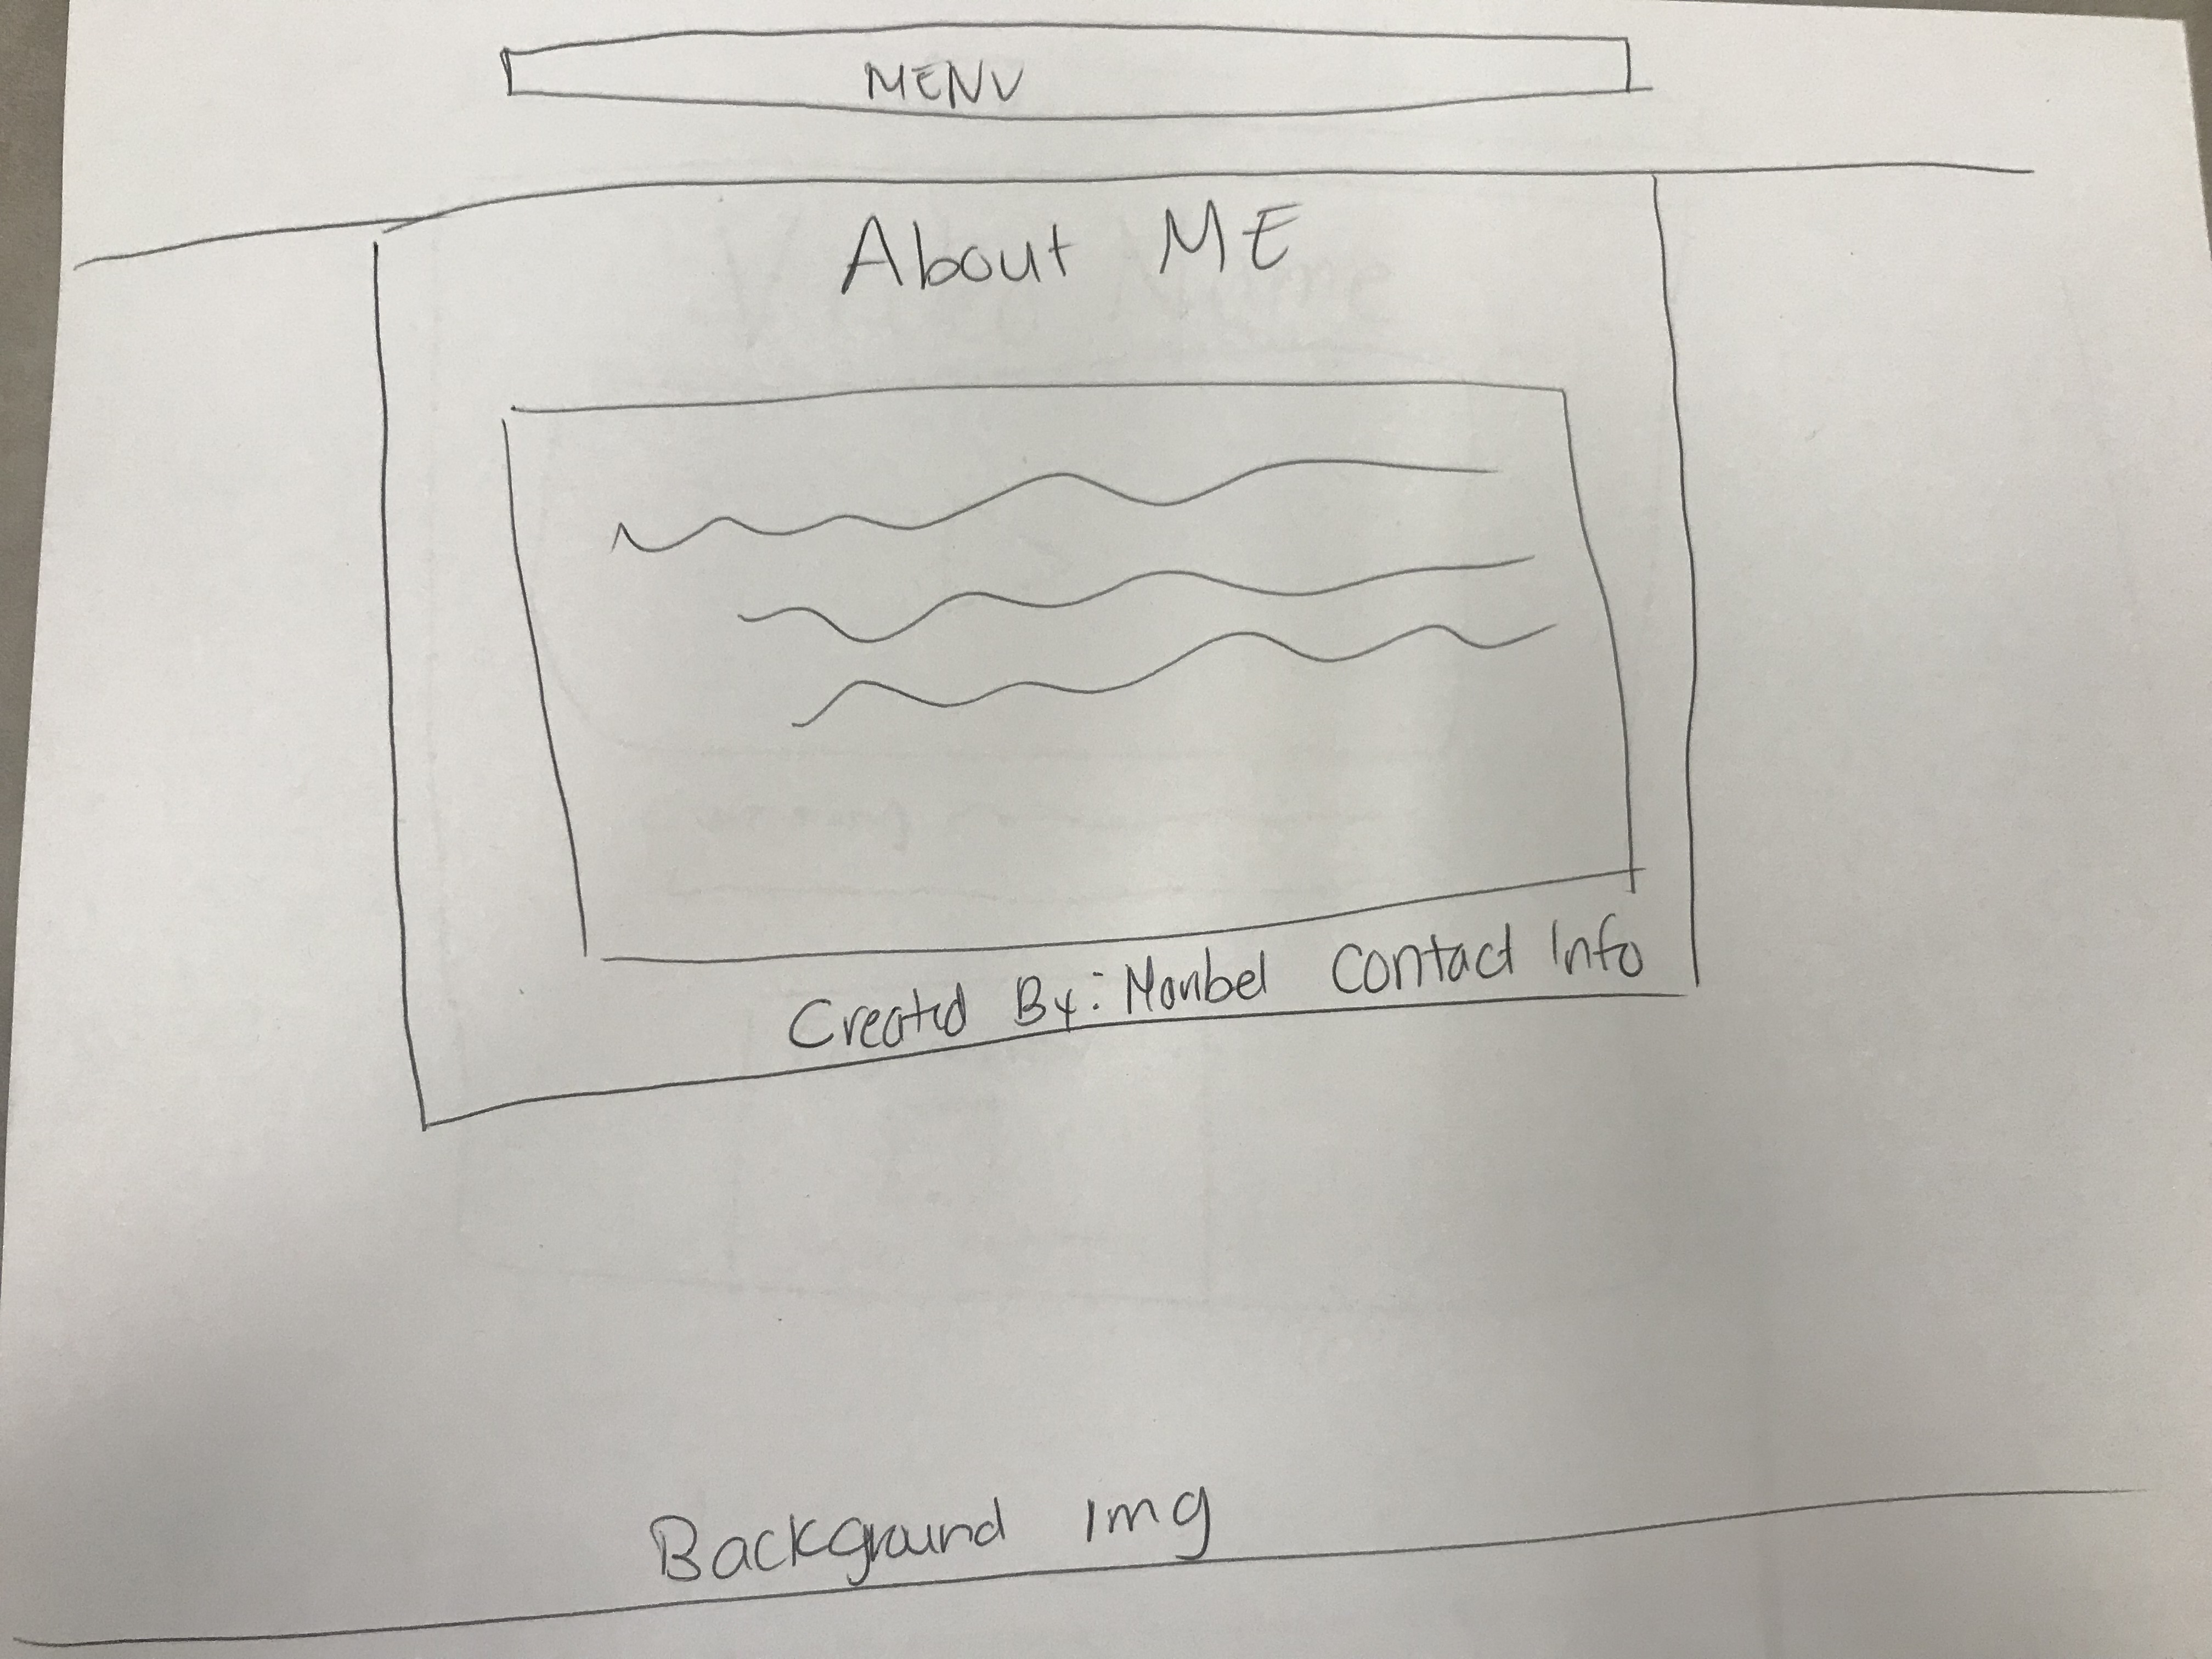 MENU
About ME
Created By: Maribel Contact Info
Background Img